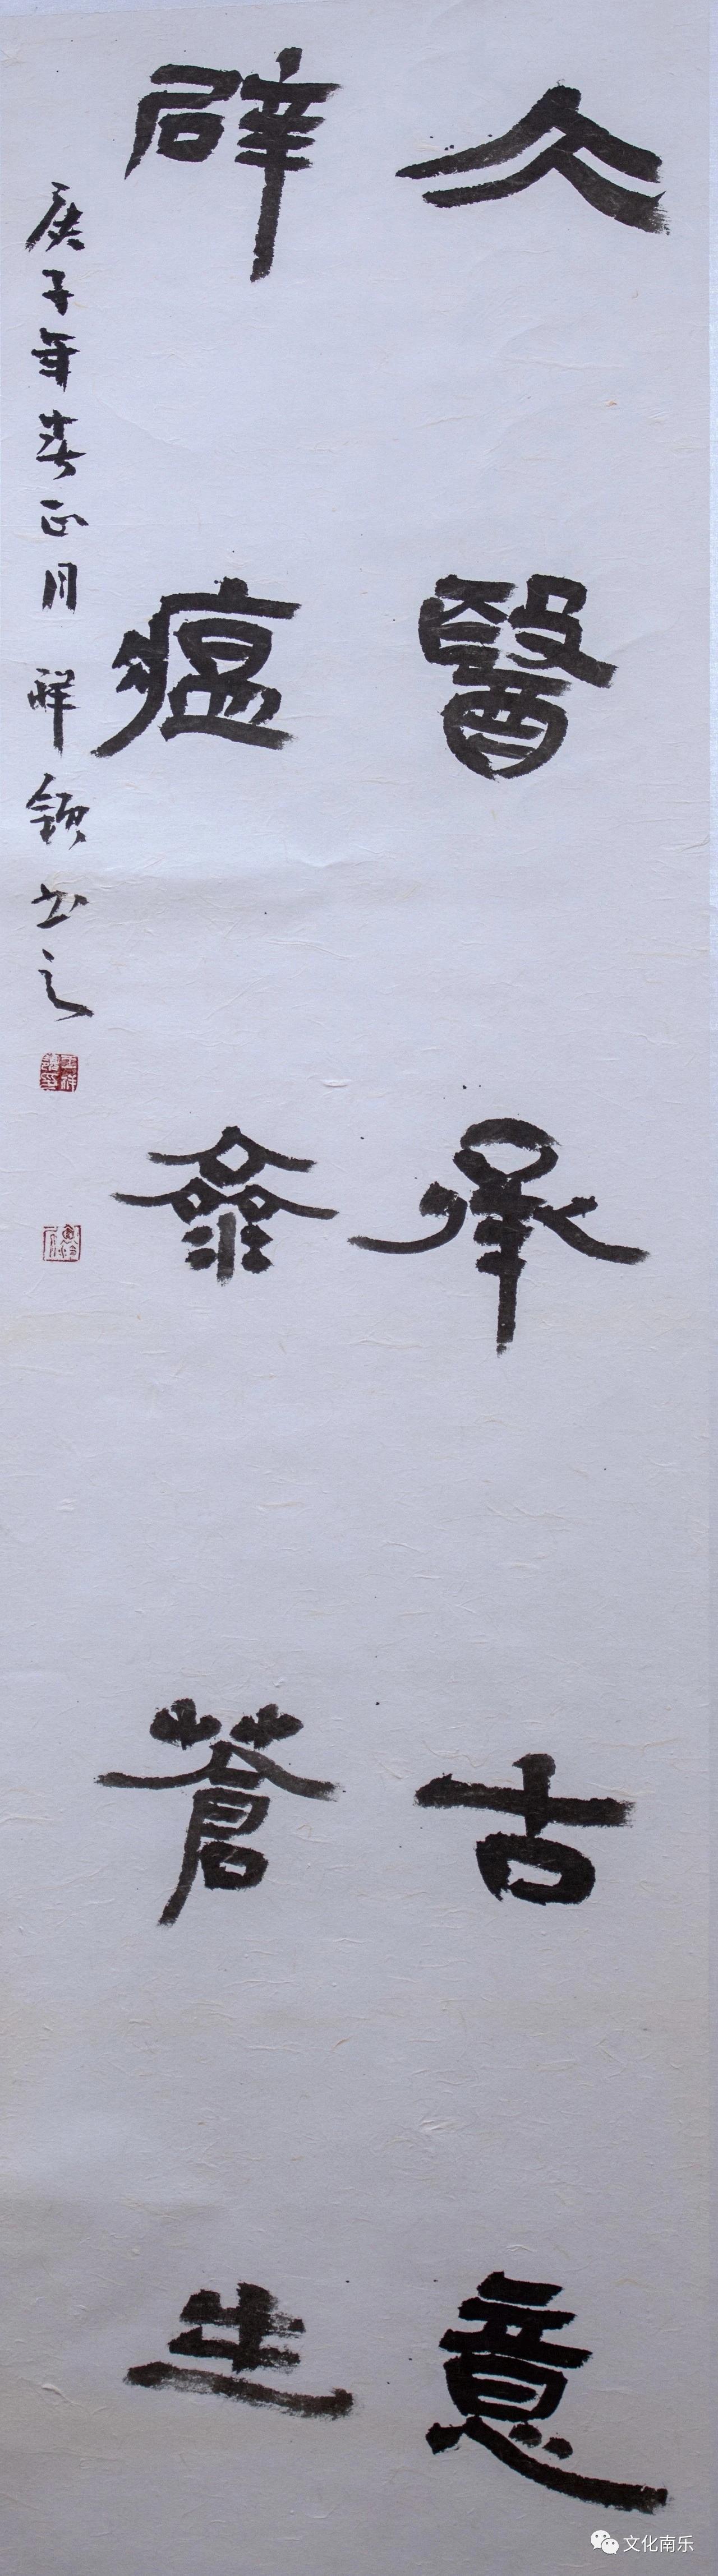 大醫承古意
辟瘟泰蒼生
庚子年春正月祥領书之
文化南乐